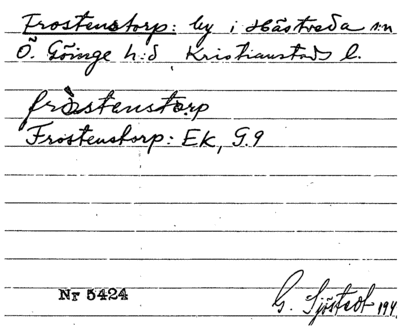 Frostenstorp: by i Hästveda s:n
Ö. Göinge h:d, Kristianstads l.
fròstenstorp
Frostenstorp: Ek, G.9
Nr 5424
G. Sjöstedt 194